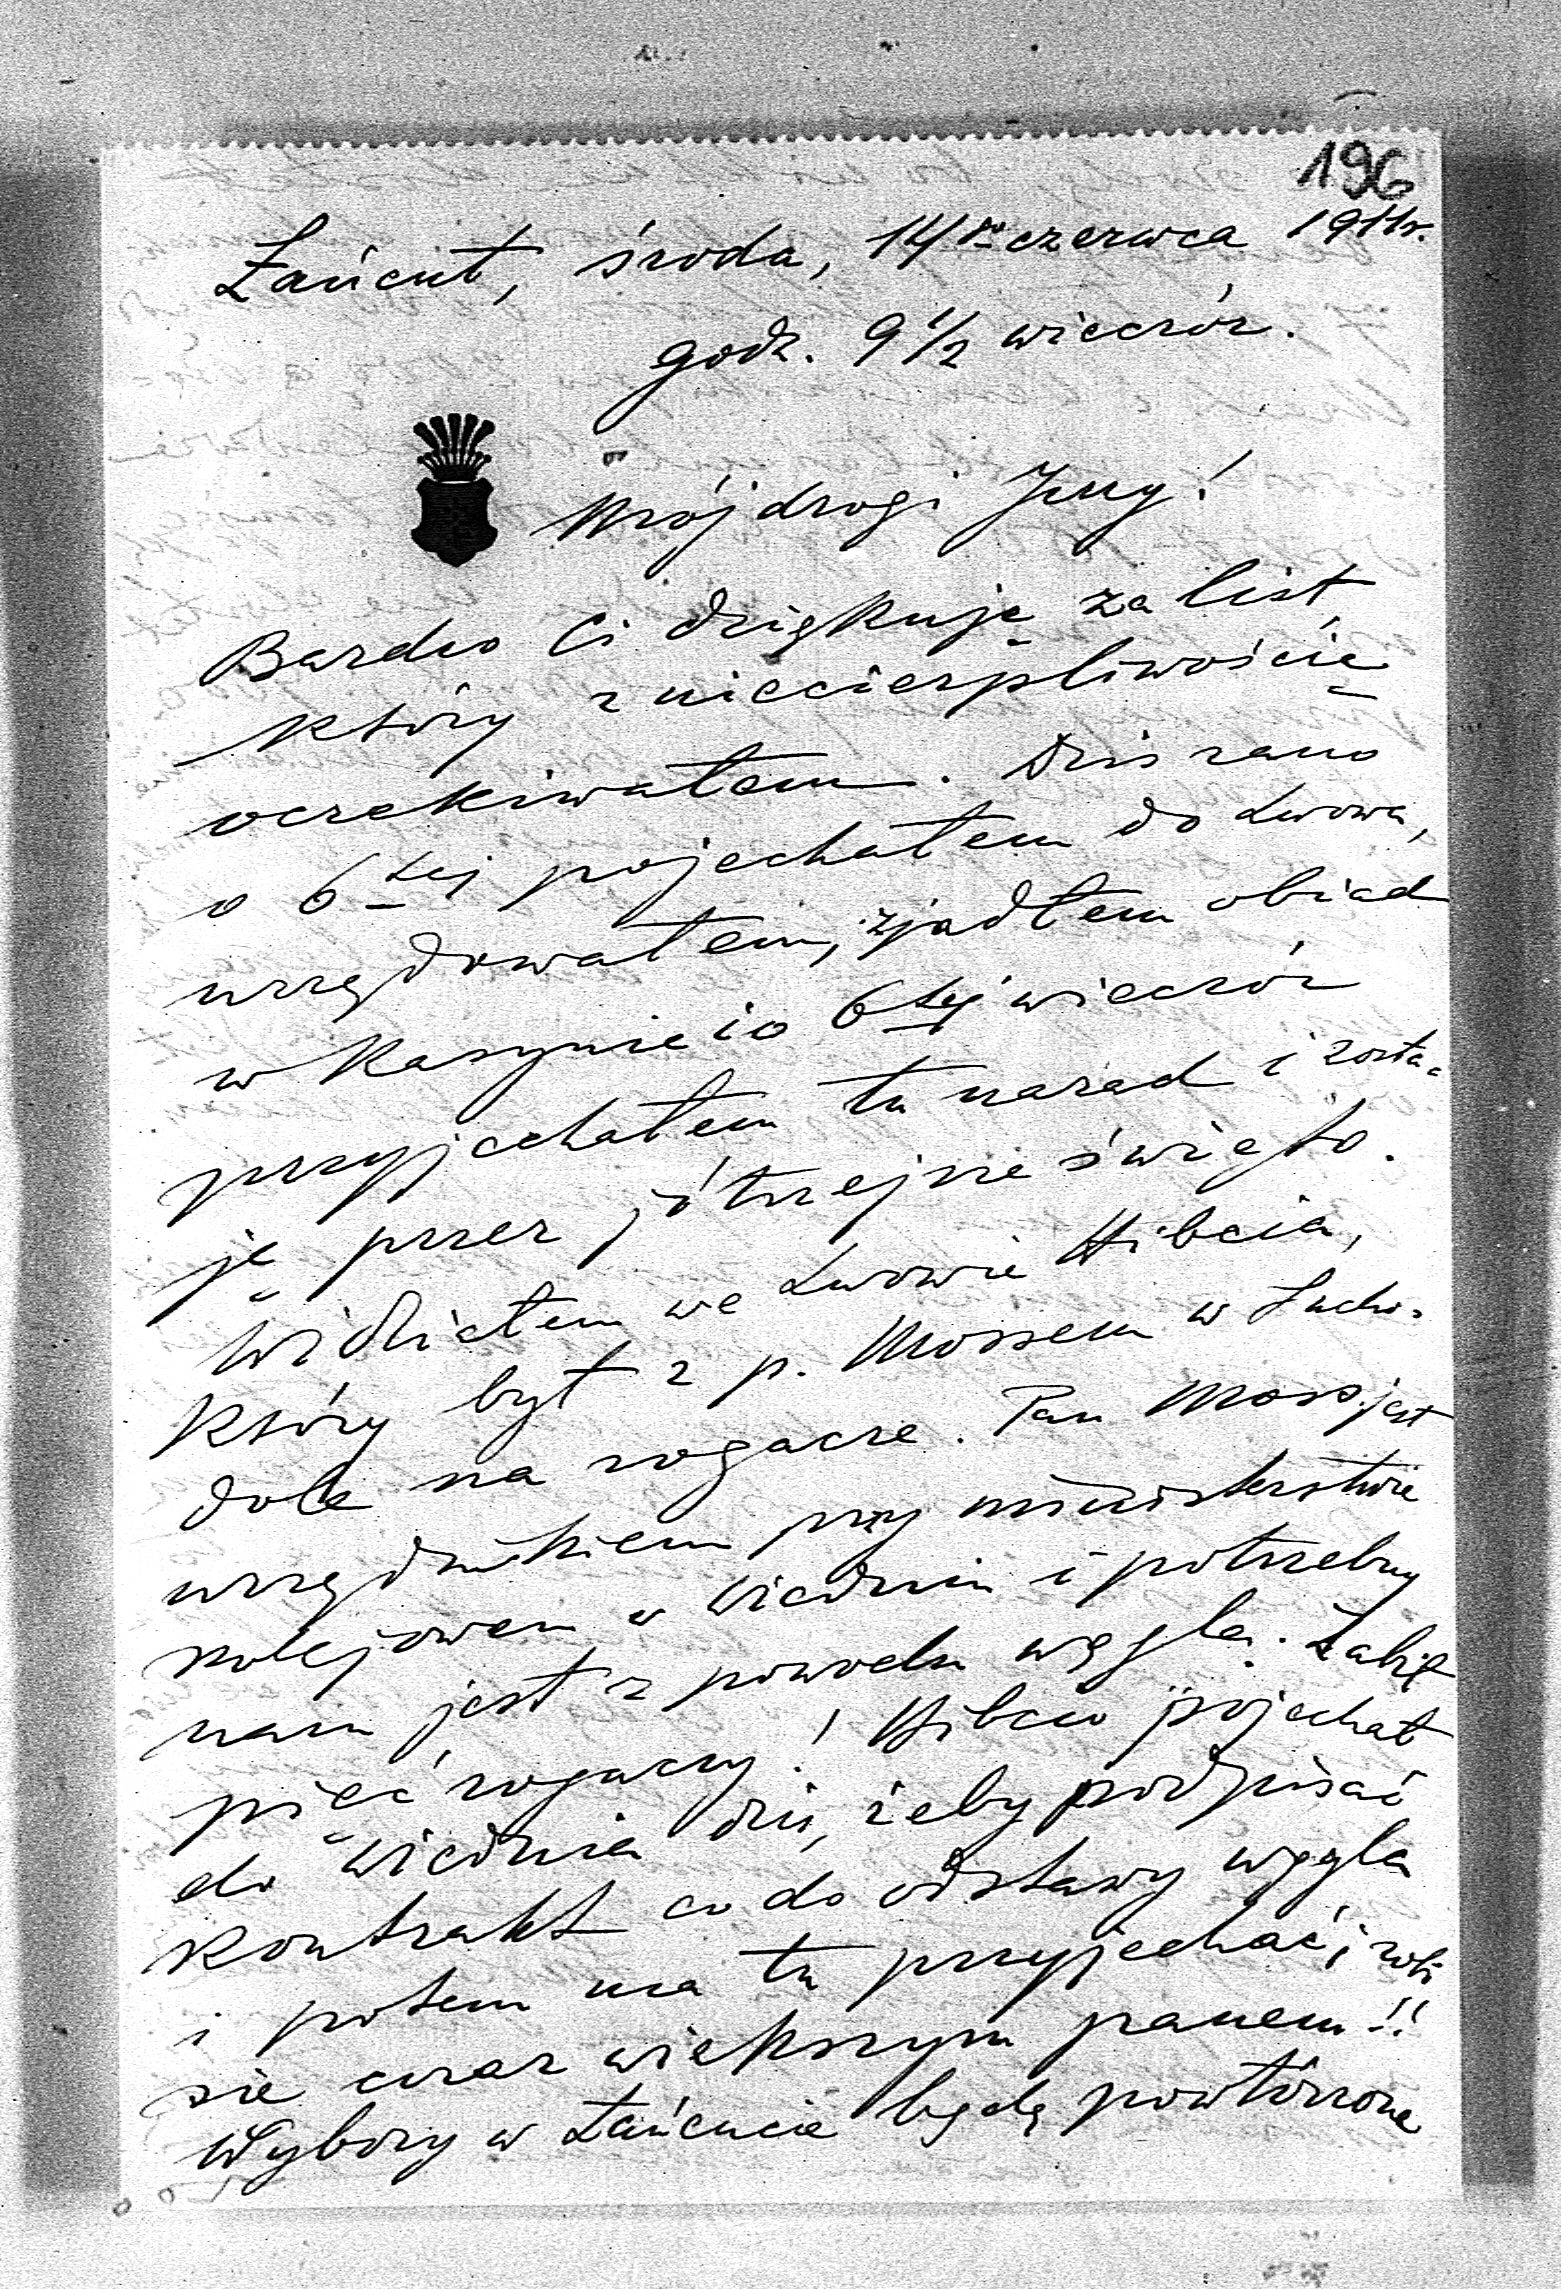 196
Łańcut, środa, 14go czerwca 1911r.
godz. 9 1/2 wieczór.
Mój drogi Jerzy!
Bardzo Ci dziękuję za list,
który z niecierpliwością
oczekiwałem. Dziś rano
o 6tej pojechałem do Lwowa,
urzędowałem, zjadłem obiad
w Kasynie i o 6tej wieczór
przyjechałem tu nazad i zosta-
ję przez jótrzejsze święto.
Widziałem we Lwowie Hibcia,
który był z p. Mossem w Sucho-
dole na rogacze. Pan Moss jest
urzędnikiem przy ministerstwie
kolejowem w Wiedniu i potrzebny
nam jest z powodu węgla. Zabił
pięć rogaczy! Hibcio pojechał
do Wiednia dziś, żeby podpisać
Kontrakt co do odstawy węgla
i potem ma tu przyjechać i robi
się coraz większym panem!!
Wybory w Łańcucie będą powtórzone